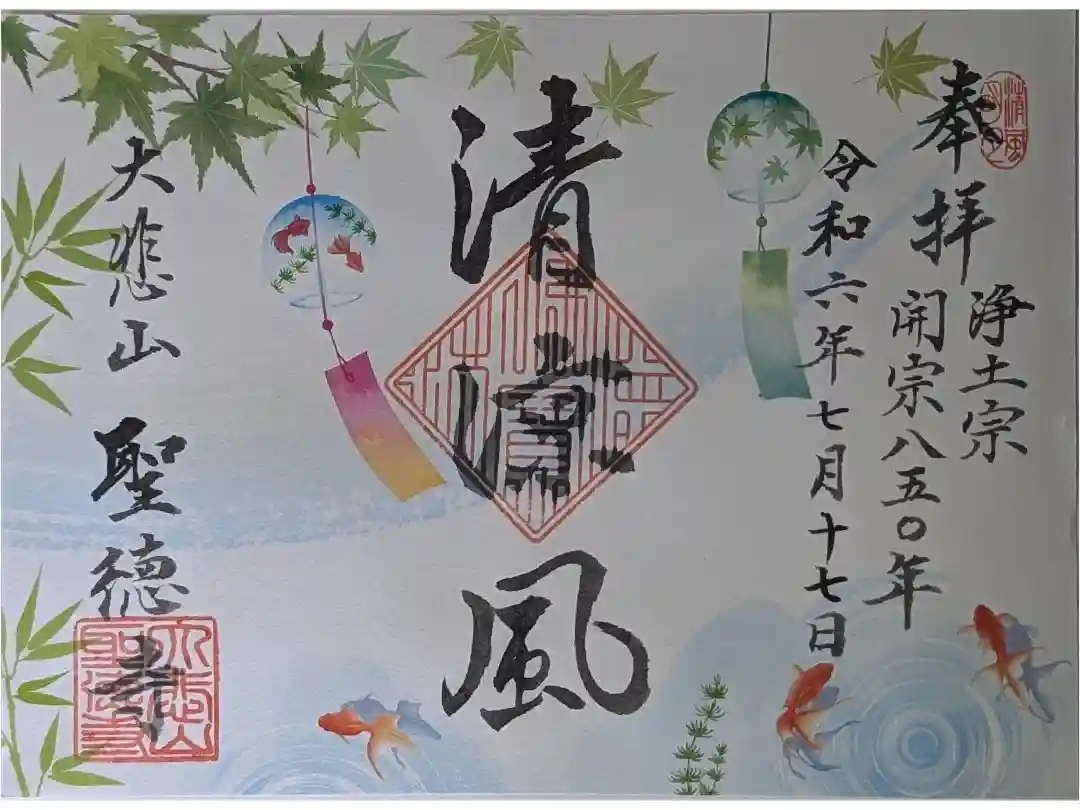 奉拝
浄土宗
開宗八五〇年
令和六年七月十七日
清涼風
大悲山 聖徳寺
大悲山
聖徳寺